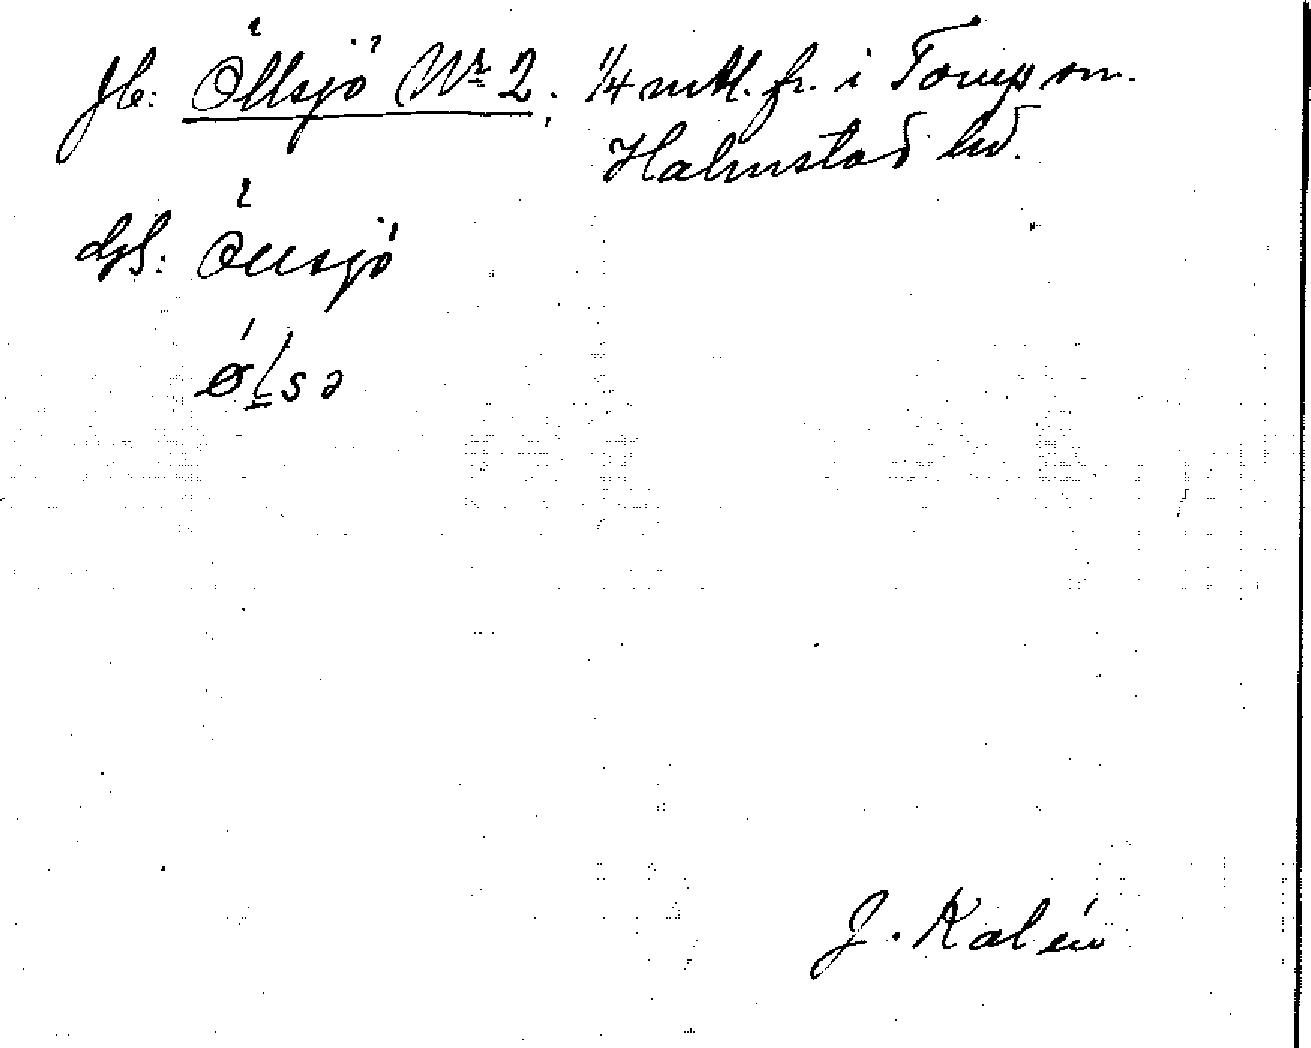 Jb: Öllsjö Nr 2; 1/4 mtl. fr. i Torup sn.
Halmstad hd.
dgl: Öllsjö
ǿlsə
J. Kalén